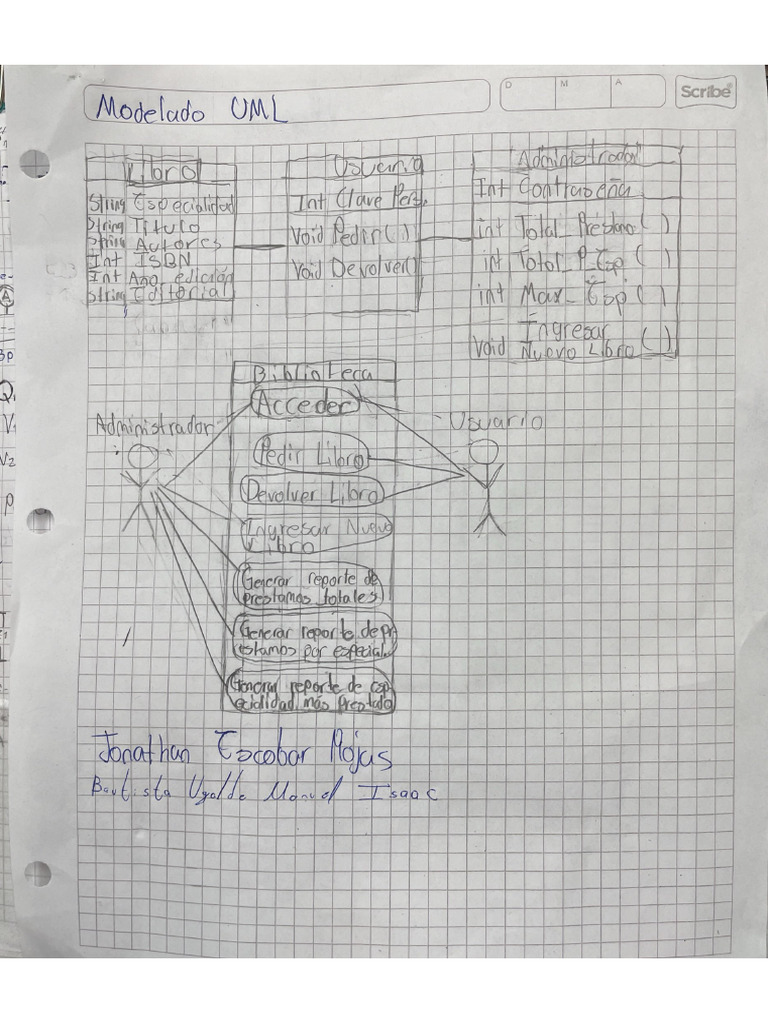 D M A
Scribe
Modelado UML
Libro
String Especialidad
String Titulo
String Autores
Int ISBN
Int Ano_edición
String Editorial
Usuario
Int Clave Pers.
Void Pedir()
Void Devolver()
Administrador
Int Contraseña
int Total_Prestamo()
int Total_P_Esp()
int Max_Esp()
Void Ingresar
Nuevo Libro()
Biblioteca
Administrador
Usuario
Acceder
Pedir Libro
Devolver Libro
Ingresar Nuevo
Libro
Generar reporte de
prestamos totales
Generar reporte de pr
estamos por especial.
Generar reporte de esp
ecialidad más prestado
Jonathan Escobar Rojas
Bautista Ugalde Manuel Isaac